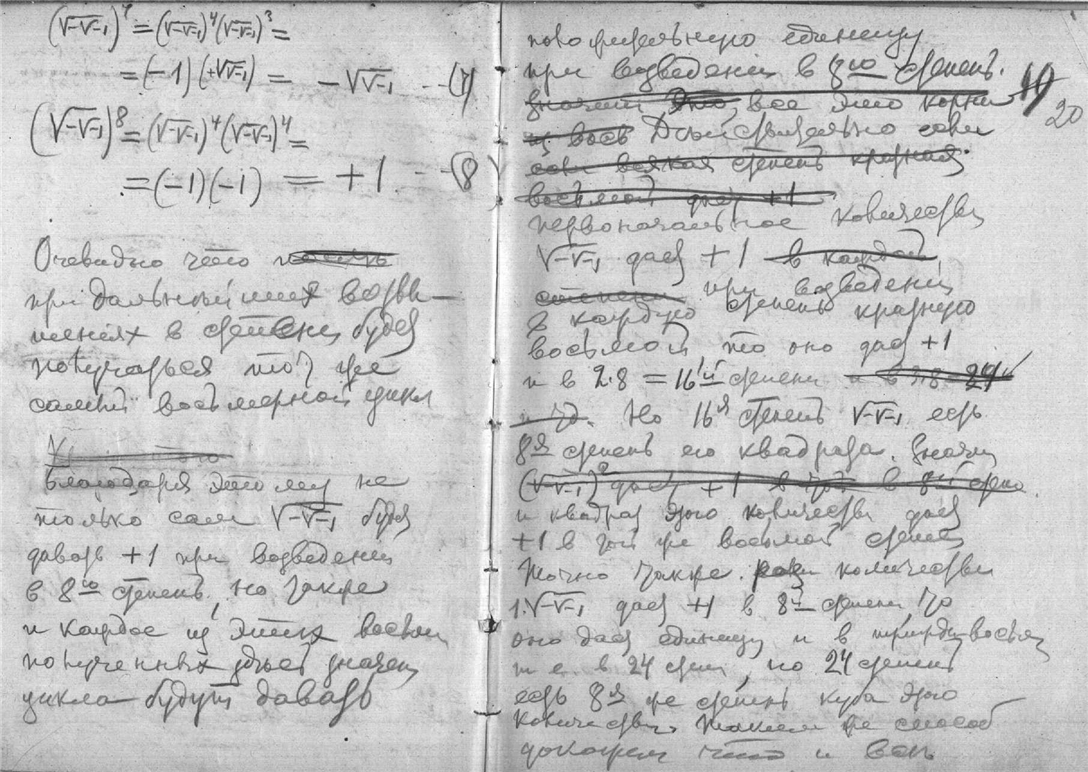 (√-√-1)⁷ = (√-√-1)⁴(√-√-1)³ =
= (-1)(+√√-1) = -√√-1 --(7)
(√-√-1)⁸ = (√-√-1)⁴(√-√-1)⁴ =
= (-1)(-1) = +1 --(8)
Очевидно что
при дальнейших возвы-
шениях в степени будет
получаться тот же
самый восьмерной цикл
Благодаря этому не
только сам √-√-1 будет
давать +1 при возведении
в 8ую степень, но также
и каждое из этих восьми
полученных здесь значен
цикла будут давать
положительную единицу
при возведении в 8ую степень.
значит это все это корни
19
20
из восьм Действительно если
если всякая степень кратная
восьмой дает +1
первоначальное количество
√-√-1 дает +1 в каждой
степени при возведении
в каждую степень кратную
восьмой то оно дает +1
и в 2.8 = 16ой степени и в 3.8 24
и т.д. Но 16я степень √-√-1 есть
8я степень его квадрата. Значит
(√-√-1)² дает +1 в той в 8й степе
и квадрат этого количества дает
+1 в той же восьмой степени
Точно также. количество
1.√-√-1 дает +1 в 8й степени то
оно дает единицу и в трижды-восьм
т.е. в 24 степ, но 24 степень
есть 8я же степень куба этого
количества. Таким же способ
докажем что и вся